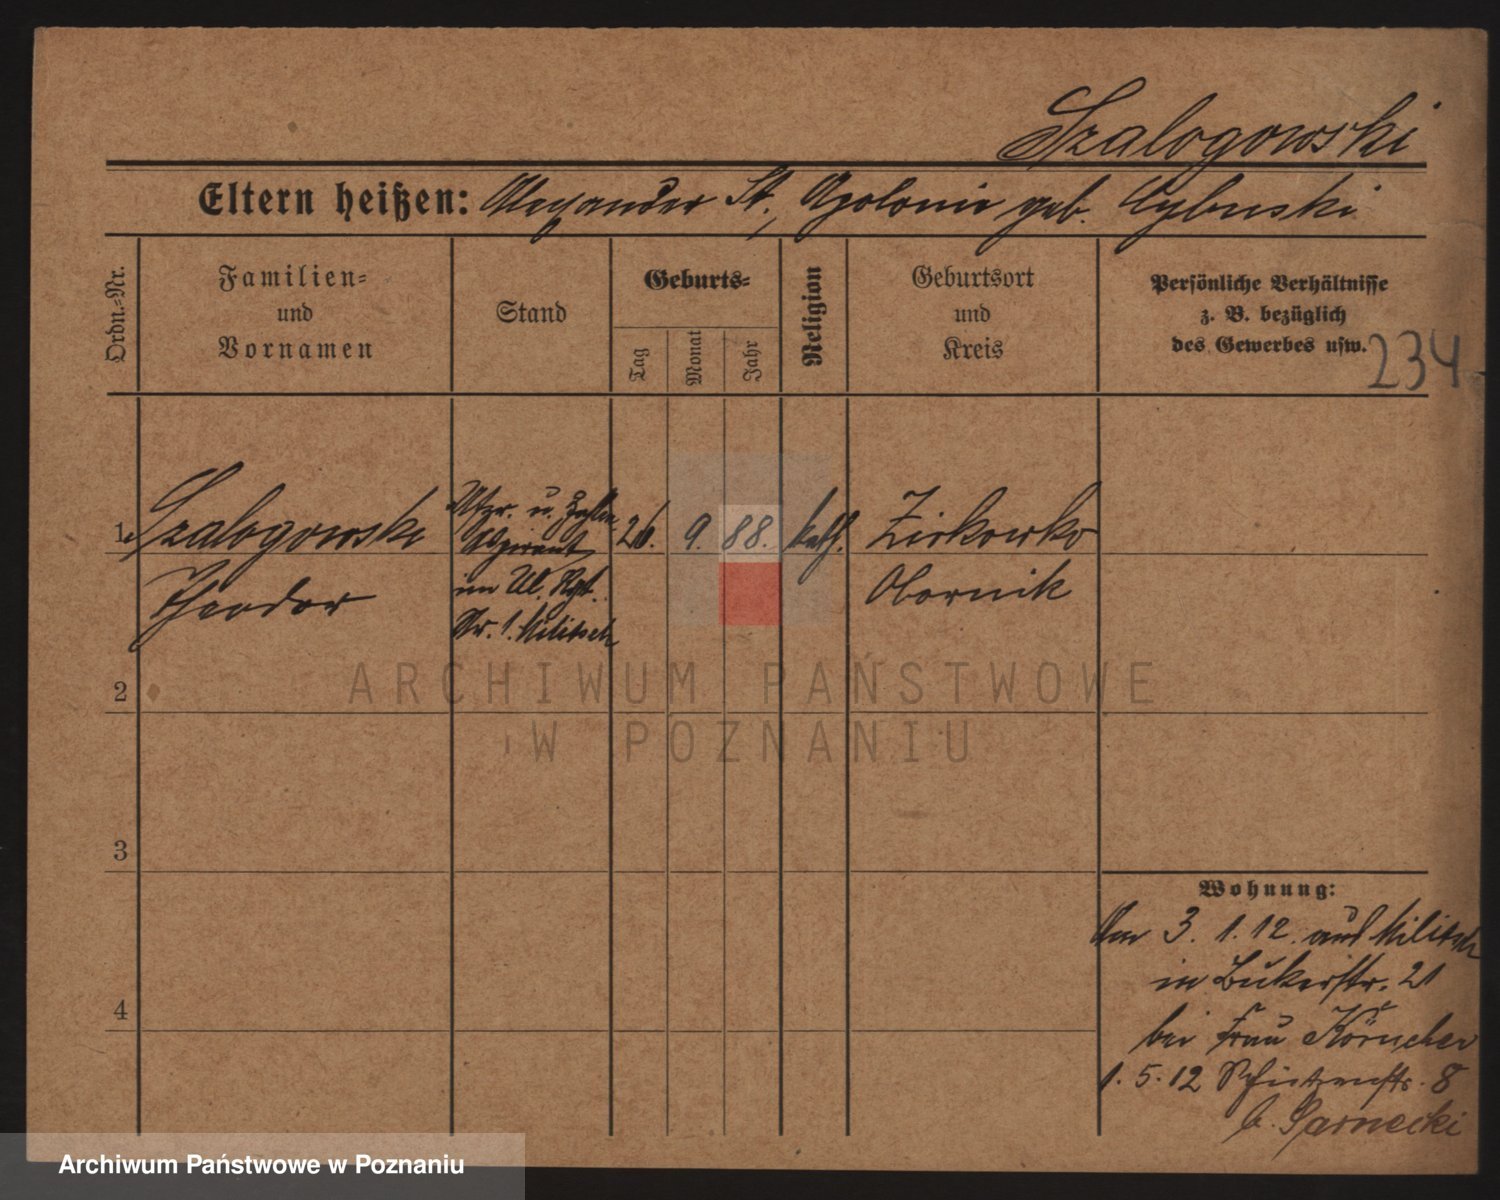 Szalogowski
Eltern heißen: Alexander St., Apolonie geb. Cybuski
Ordn.-Nr.
Familien-
und
Vornamen
Stand
Geburts-
Tag
Monat
Jahr
Religion
Geburtsort
und
Kreis
Persönliche Verhältnisse
z. B. bezüglich
des Gewerbes usw.
234
1. Szalogowski Utzr. u. Zahlm. 26. 9. 88. kath. Zirkowko
Aspirant
Theodor im Ul. Rgt. Obornik
Nr. 1. Militsch
2
ARCHIWUM PAŃSTWOWE
W POZNANIU
3
4
Wohnung:
Am 3. 1. 12. aus Militsch
in Bukerstr. 21
bei Frau
1. 5. 12 Schützenstr. 8
b. Sarnecki
Archiwum Państwowe w Poznaniu